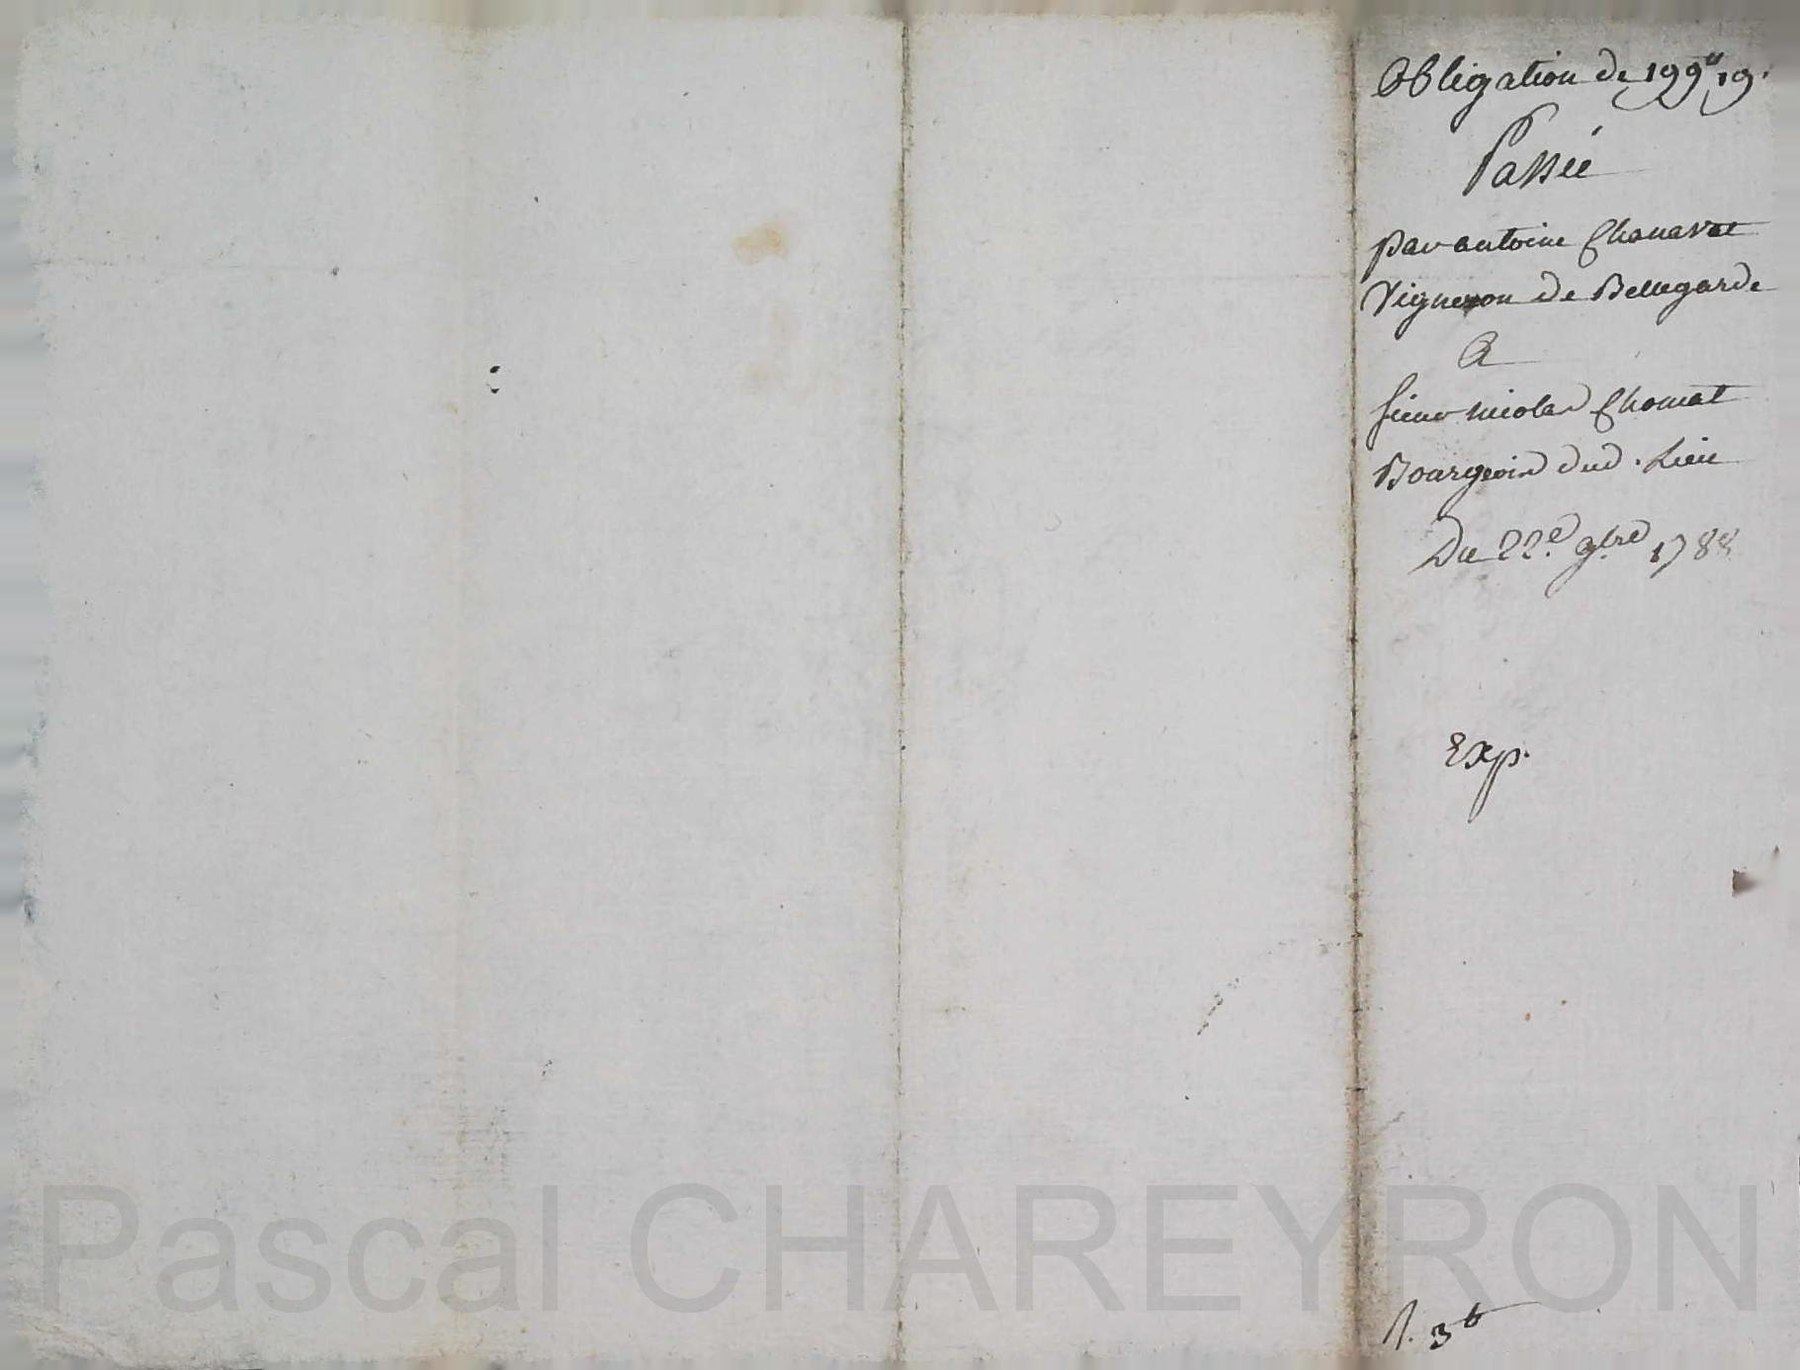 Obligation de 199# 19.
Passée
par antoine Chanavat
Vigneron de Bellegarde
A
sieur nicolas Chomat
Bourgeois dud. Lieu
Du 22e. 9bre 1788
Exp.
Pascal CHAREYRON